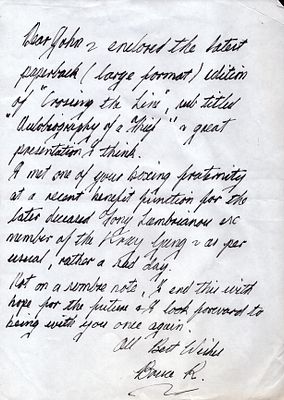 Dear John ~ enclosed the latest
paperback (large format) edition
of "Crossing the Line", sub titled
"Autobiography of a Thief" a great
presentation I think.
I met one of your boxing fraternity
at a recent benefit function for the
later deceased Tony Lambrianou exc
member of the Kray Gang ~ as per
usual, rather a sad day.
Not on a sombre note, I end this with
hope for the future & I look forward to
being with you once again.
All Best Wishes
Bruce R.